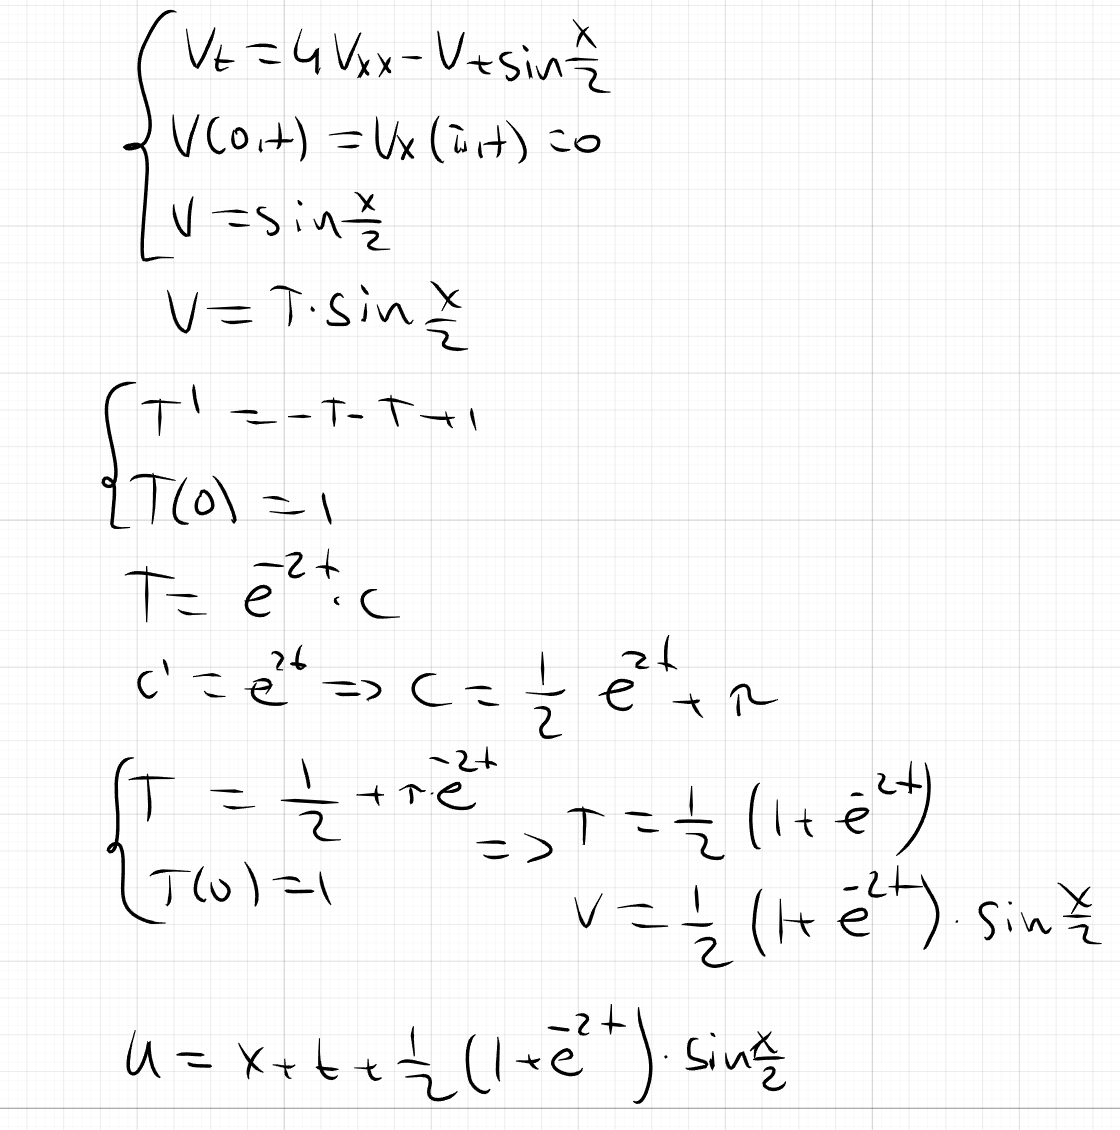 V_t = 4 V_xx - V + sin x/2
V(0,t) = V_x(π,t) = 0
V = sin x/2
V = T · sin x/2
T' = -T - T + 1
T(0) = 1
T = e^{-2t} · c
c' = e^{2t} => c = 1/2 e^{2t} + r
T = 1/2 + r·e^{-2t} => T = 1/2 (1 + e^{-2t})
T(0) = 1
V = 1/2 (1 + e^{-2t}) · sin x/2
u = x + t + 1/2 (1 + e^{-2t}) · sin x/2